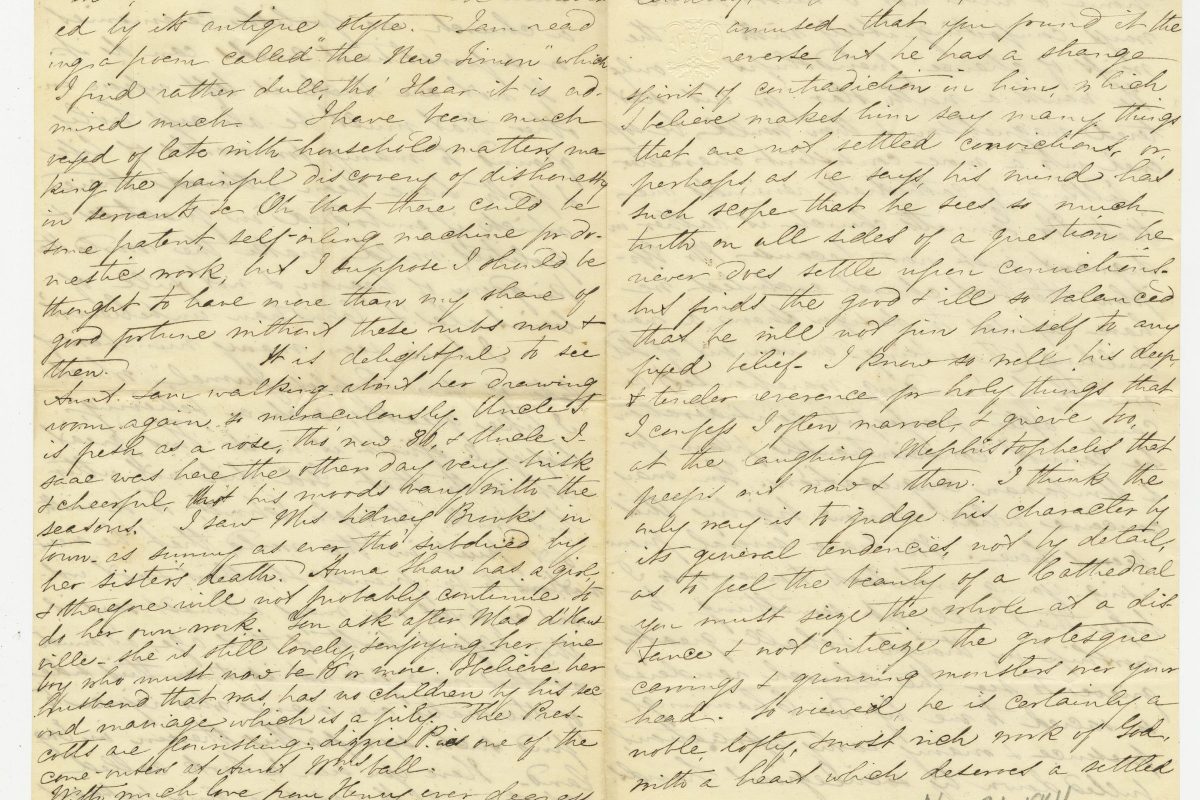 ed by its antique style. I am read
ing a poem called "the New Timon" which
I find rather dull, tho' I hear it is ad-
mired much. I have been much
vexed of late with household matters, ma
king the painful discovery of dishonesty
in servants &c Oh that there could be
some patent, self-oiling machine for do-
mestic work, but I suppose I should be
thought to have more than my share of
good fortune without these rubs now &
then. It is delightful to see
Aunt Sam walking about her drawing
room again so miraculously. Uncle S.
is fresh as a rose, tho' now 80, & Uncle I-
saac was here the other day very brisk
& cheerful, but his moods vary with the
seasons. I saw Mrs Sidney Brooks in
town - as sunny as ever tho' subdued by
her sister's death. Anna Shaw has a girl,
& therefore will not probably continue to
do her own work. You ask after Mad d'Haut
ville - she is still lovely, enjoying her fine
boy who must now be 8 or more. I believe her
husband that was, has no children by his sec
ond marriage, which is a pity. The Pres-
cotts are flourishing. Lizzie P. is one of the
come-outers at Aunt Wms ball.
With much love from Henry ever
amused that you found it the
reverse but he has a strange
spirit of contradiction in him, which
I believe makes him say many things
that are not settled convictions, or,
perhaps, as he says, his mind has
such scope that he sees so much
truth on all sides of a question he
never does settle upon convictions -
but finds the good & ill so balanced
that he will not pin himself to any
fixed belief - I know so well his deep
& tender reverence for holy things that
I confess I often marvel, & grieve too,
at the laughing Mephistopheles that
peeps out now & then. I think the
only way is to judge his character by
its general tendencies, not by detail,
as to feel the beauty of a Cathedral
you must seize the whole at a dis
tance & not criticize the grotesque
carvings & grinning monsters over your
head. So viewed, he is certainly a
noble, lofty, & most rich work of God,
with a heart which deserves a settled